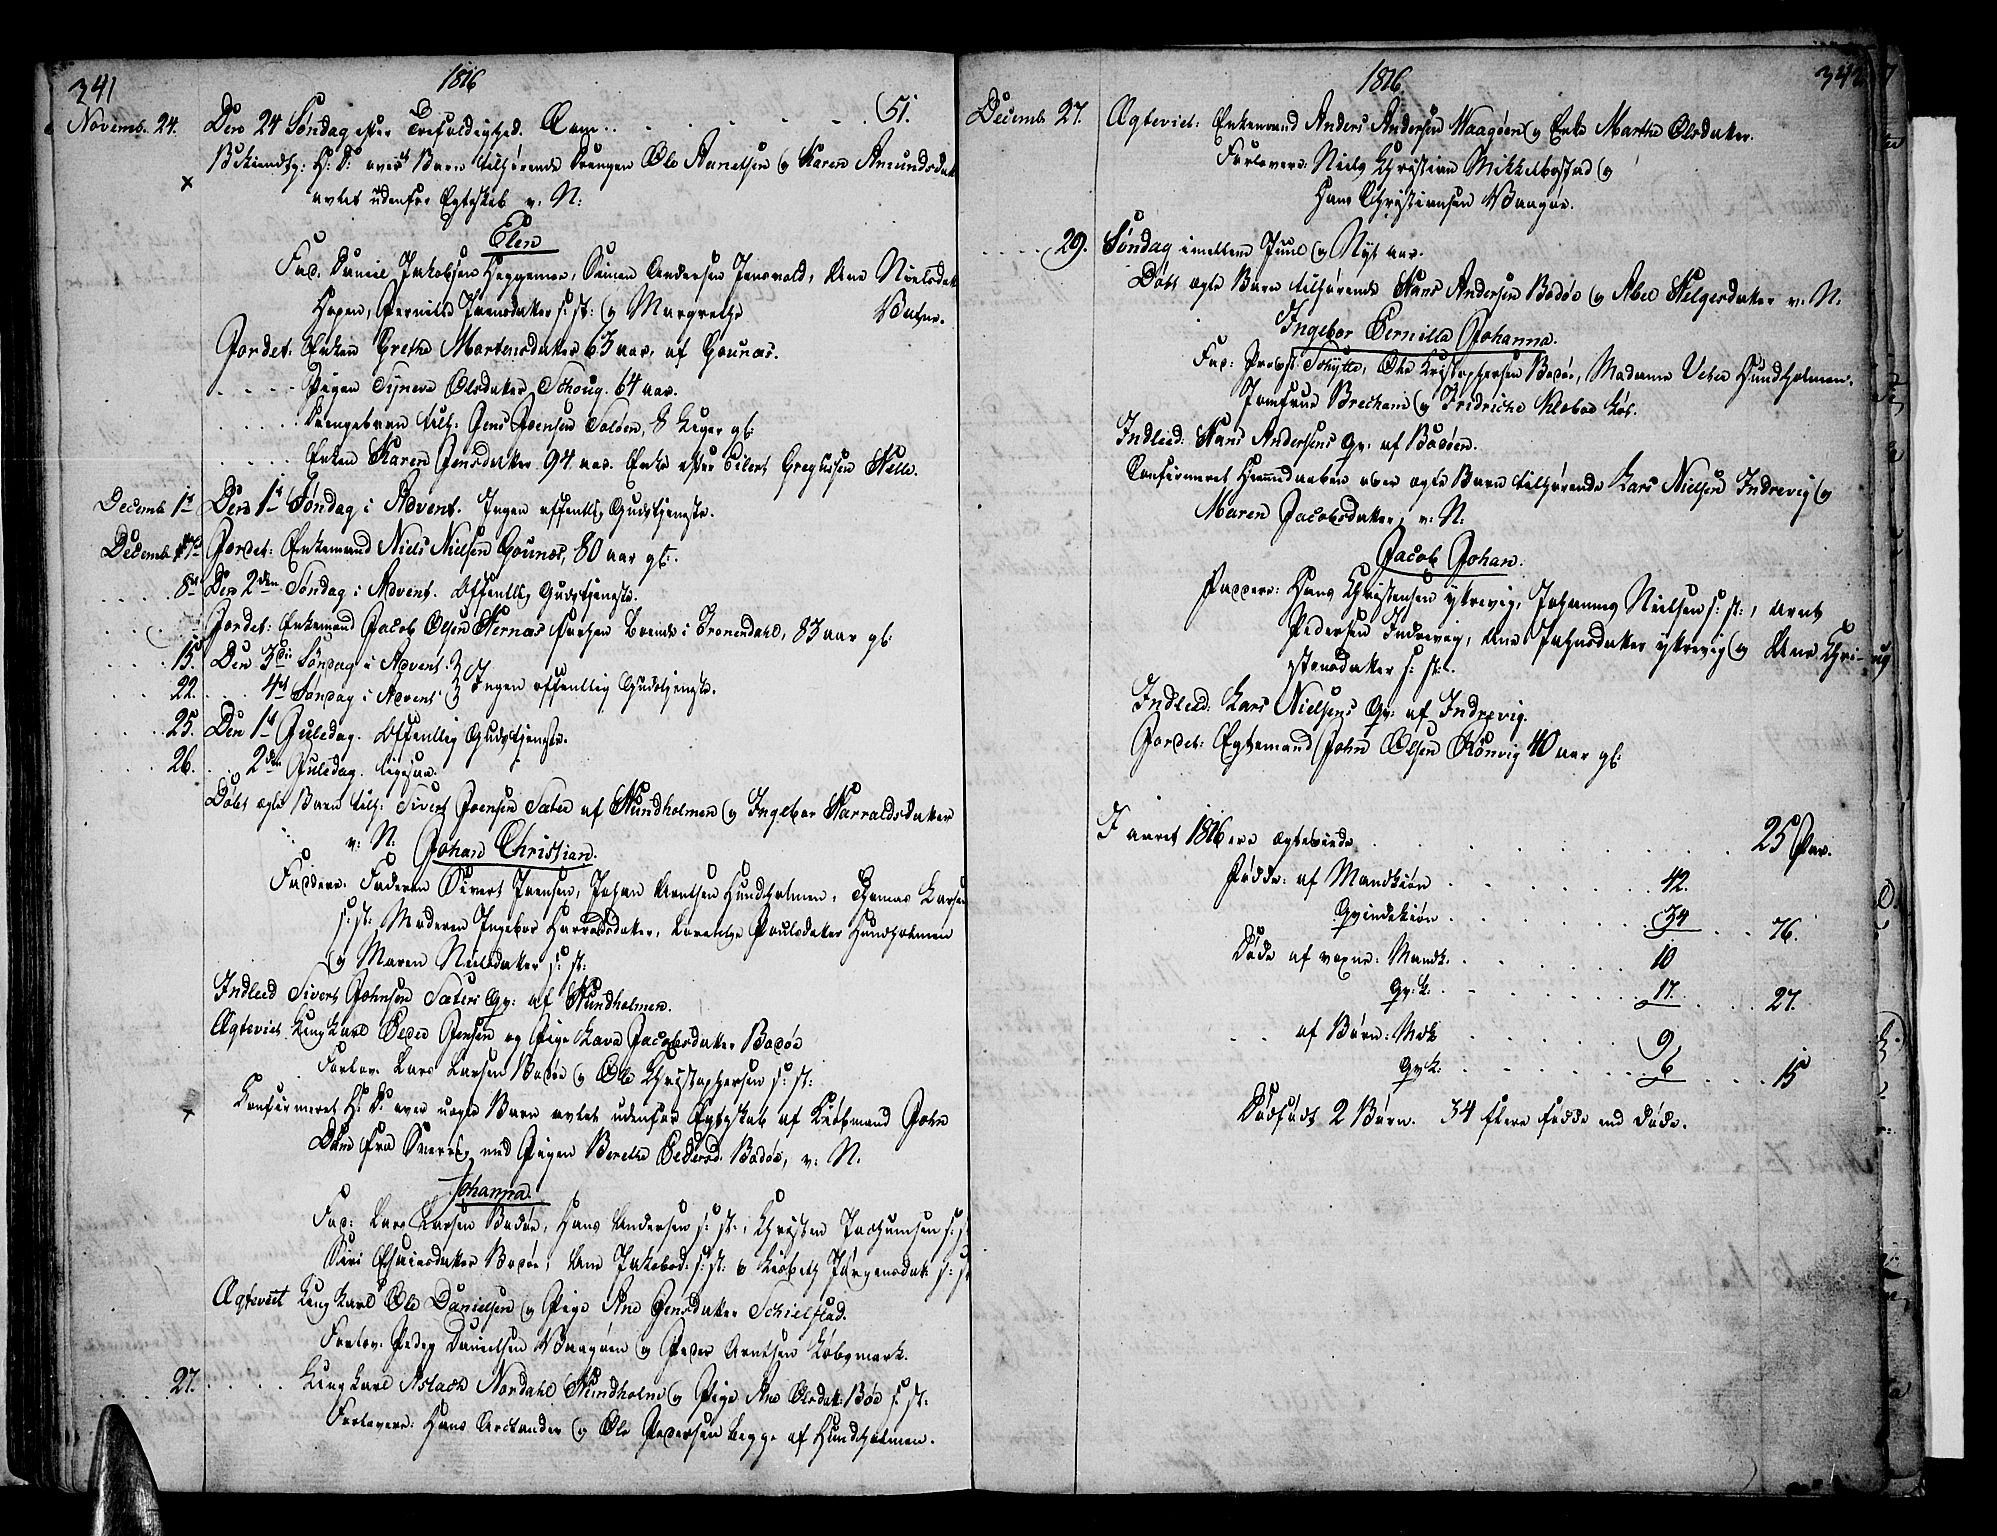 341
1816
Novemb. 24. Den 24 Søndag efter Trefoldighed. Com. . . (51.
Bekiendtg: H: D: over Barn tilhørende Drengen Ole Arnetsen og Karen Amundsdat
avlet udenfor Egteskab v: N:
Elen
Fad. Daniel Jakobsen Heggemoe, Simon Andersen Jensvold, Ane Nielsdat
Hopen, Pernille Jensdatter s: st: og Margrethe
Jordet: Enken Grethe Mortensdatter 63 aar, af Gounæs.
Pigen Synneva Olsdatter Schoug. 64 aar.
Drengebarn tilh: Jens Joensen Soløen, 8 Uger gl:
Enken Karen Jensdatter 94 aar. Enke efter Eilert Gregussen
Decemb 1st Den 1st Søndag i Advent. Ingen offentlig Gudstjeneste.
Decemb Jordet: Enkemand Niels Nielsen Gounæs, 80 aar gl:
8de Den 2den Søndag i Advent. Offentlig Gudstjeneste.
Jordet: Enkemand Jacob Olsen Hernæs i Tronendahl, 83 aar gl:
15. Den 3die Søndag i Advent.
22. 4de Søndag i Advent Ingen offentlig Gudstjeneste.
25. Den 1st Juledag. Offentlig Gudstjeneste.
26. 2den Juledag. ligesaa.
Døbt ægte Barn tilh: Sivert Joensen Sæter af Hundholmen og Ingebor Harraldsdatter
v: N. Johan Christian.
Faddere. Faderen Sivert Joensen, Johan Arntsen Hundholmen, Thomas Larsen
s: st: Moderen Ingebor Harraldsdatter, Lorentze Poulsdatter Hundholmen
og Maren Nielsdatter s: st:
Indleed Sivert Johnsen Sæters Qv: af Hundholmen.
Ægteviet Ungkarl Peder Jensen og Pige Lava Jacobsdatter Bodøe
Forlov. Lars Larsen Bodøe og Ole Christophersen s: st:
Confirmeret H: D: over uægte Barn avlet udenfor Egteskab af Kiøbmand John
Dom fra Sverrig med Pigen Berethe Pedersd. Bodøe, v: N.
Johanna.
Fad: Lars Larsen Bodøe, Hans Andersen s: st:, Christen Jochumsen s: st
Siri Esaiasdatter Bodøe, Ane Jakobsd: s: st: & Lisbeth Jørgensdat: s: st
Ægteviet Ungkarl Ole Danielsen og Pige Ane Jensdatter Schielstad.
Forlov. Peder Danielsen Vaagøen og Peder Arntsen Løbsmark.
27. Ungkarl Aslach Nordahl Hundholm og Pige Ane Olsdat: Bøe s: st:
Forlovere: Hans Arctander og Ole Pedersen begge af Hundholmen.
342
1816.
Decemb 27. Ægteviet: Enkemand Anders Andersen Vaagøen og Enke Marthe Olsdatter.
Forlovere: Niels Christian Mikkelbostad og
Hans Christiansen Vaagøe.
29. Søndag imellem Juul og Nyt aar.
Døbt ægte Barn tilhørende Hans Andersen Bodøe og Abel Helgesdatter v: N:
Ingebor Pernilla Johanna.
Fad: Probst Schytte, Ole Kristophersen Bodøe, Madame Hundholmen.
Jomfrue og Fridriche
Indleed: Hans Andersens Qv: af Bodøen.
Confirmeret Hiemmedaaben over ægte Barn tilhørende Lars Nielsen Indrevig og
Maren Jacobsdatter, v: N:
Jacob Johan.
Faddere: Hans Christensen Ytrevig, Johannes Nielsen s: st:, Arnt
Pedersen Indrevig, Ane Johnsdatter Ytrevig og Ane Chri-
stensdatter s: st:.
Indleed: Lars Nielsens Qv: af Indrevig.
Jordet: Egtemand John Olsen Rønvig 40 aar gl:
I aaret 1816 ere ægteviede . . . 25 Par.
Fødde: af Mandkiøn . . . 42.
Qvindekiøn . . . 34 . . . 76.
Døde af voxne: Mandk. . . . 10
Qv: k. . . . 17. . . . 27.
af Børn: Mdk . . . 9
Qvk: . . . 6 . . . 15
Dødfødt 2 Børn. 34 flere fødde end døde.